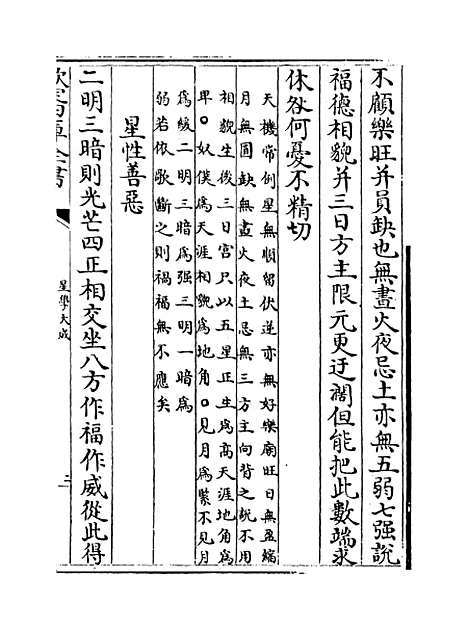 不顧樂旺并員缺也無晝火夜忌土亦無五弱七强說
福德相貌并三日方主限元更迂濶但能把此數端求
休咎何憂不精切
天機常例星無順留伏逆亦無好樂廟旺日無盈縮
月無圓缺無晝火夜土忌無三方主向背之說不用
相貌生後三日宫只以五星正生為高天涯地角為
卑。奴僕為天涯相貌為地角。見月為緊不見月
為緩二明一暗為强三明一暗為
弱若依歌斷之則禍福無不應矣
星性善惡
二明三暗則光芒四正相交坐八方作福作威從此得
欽定四庫全書
星學大成
三